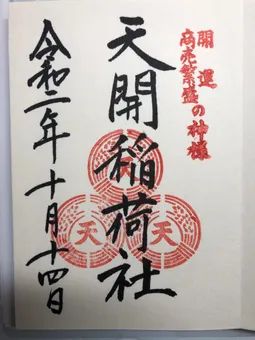 開運
商売繁盛の神様
天開稲荷社
天
天
令和二年十月十四日